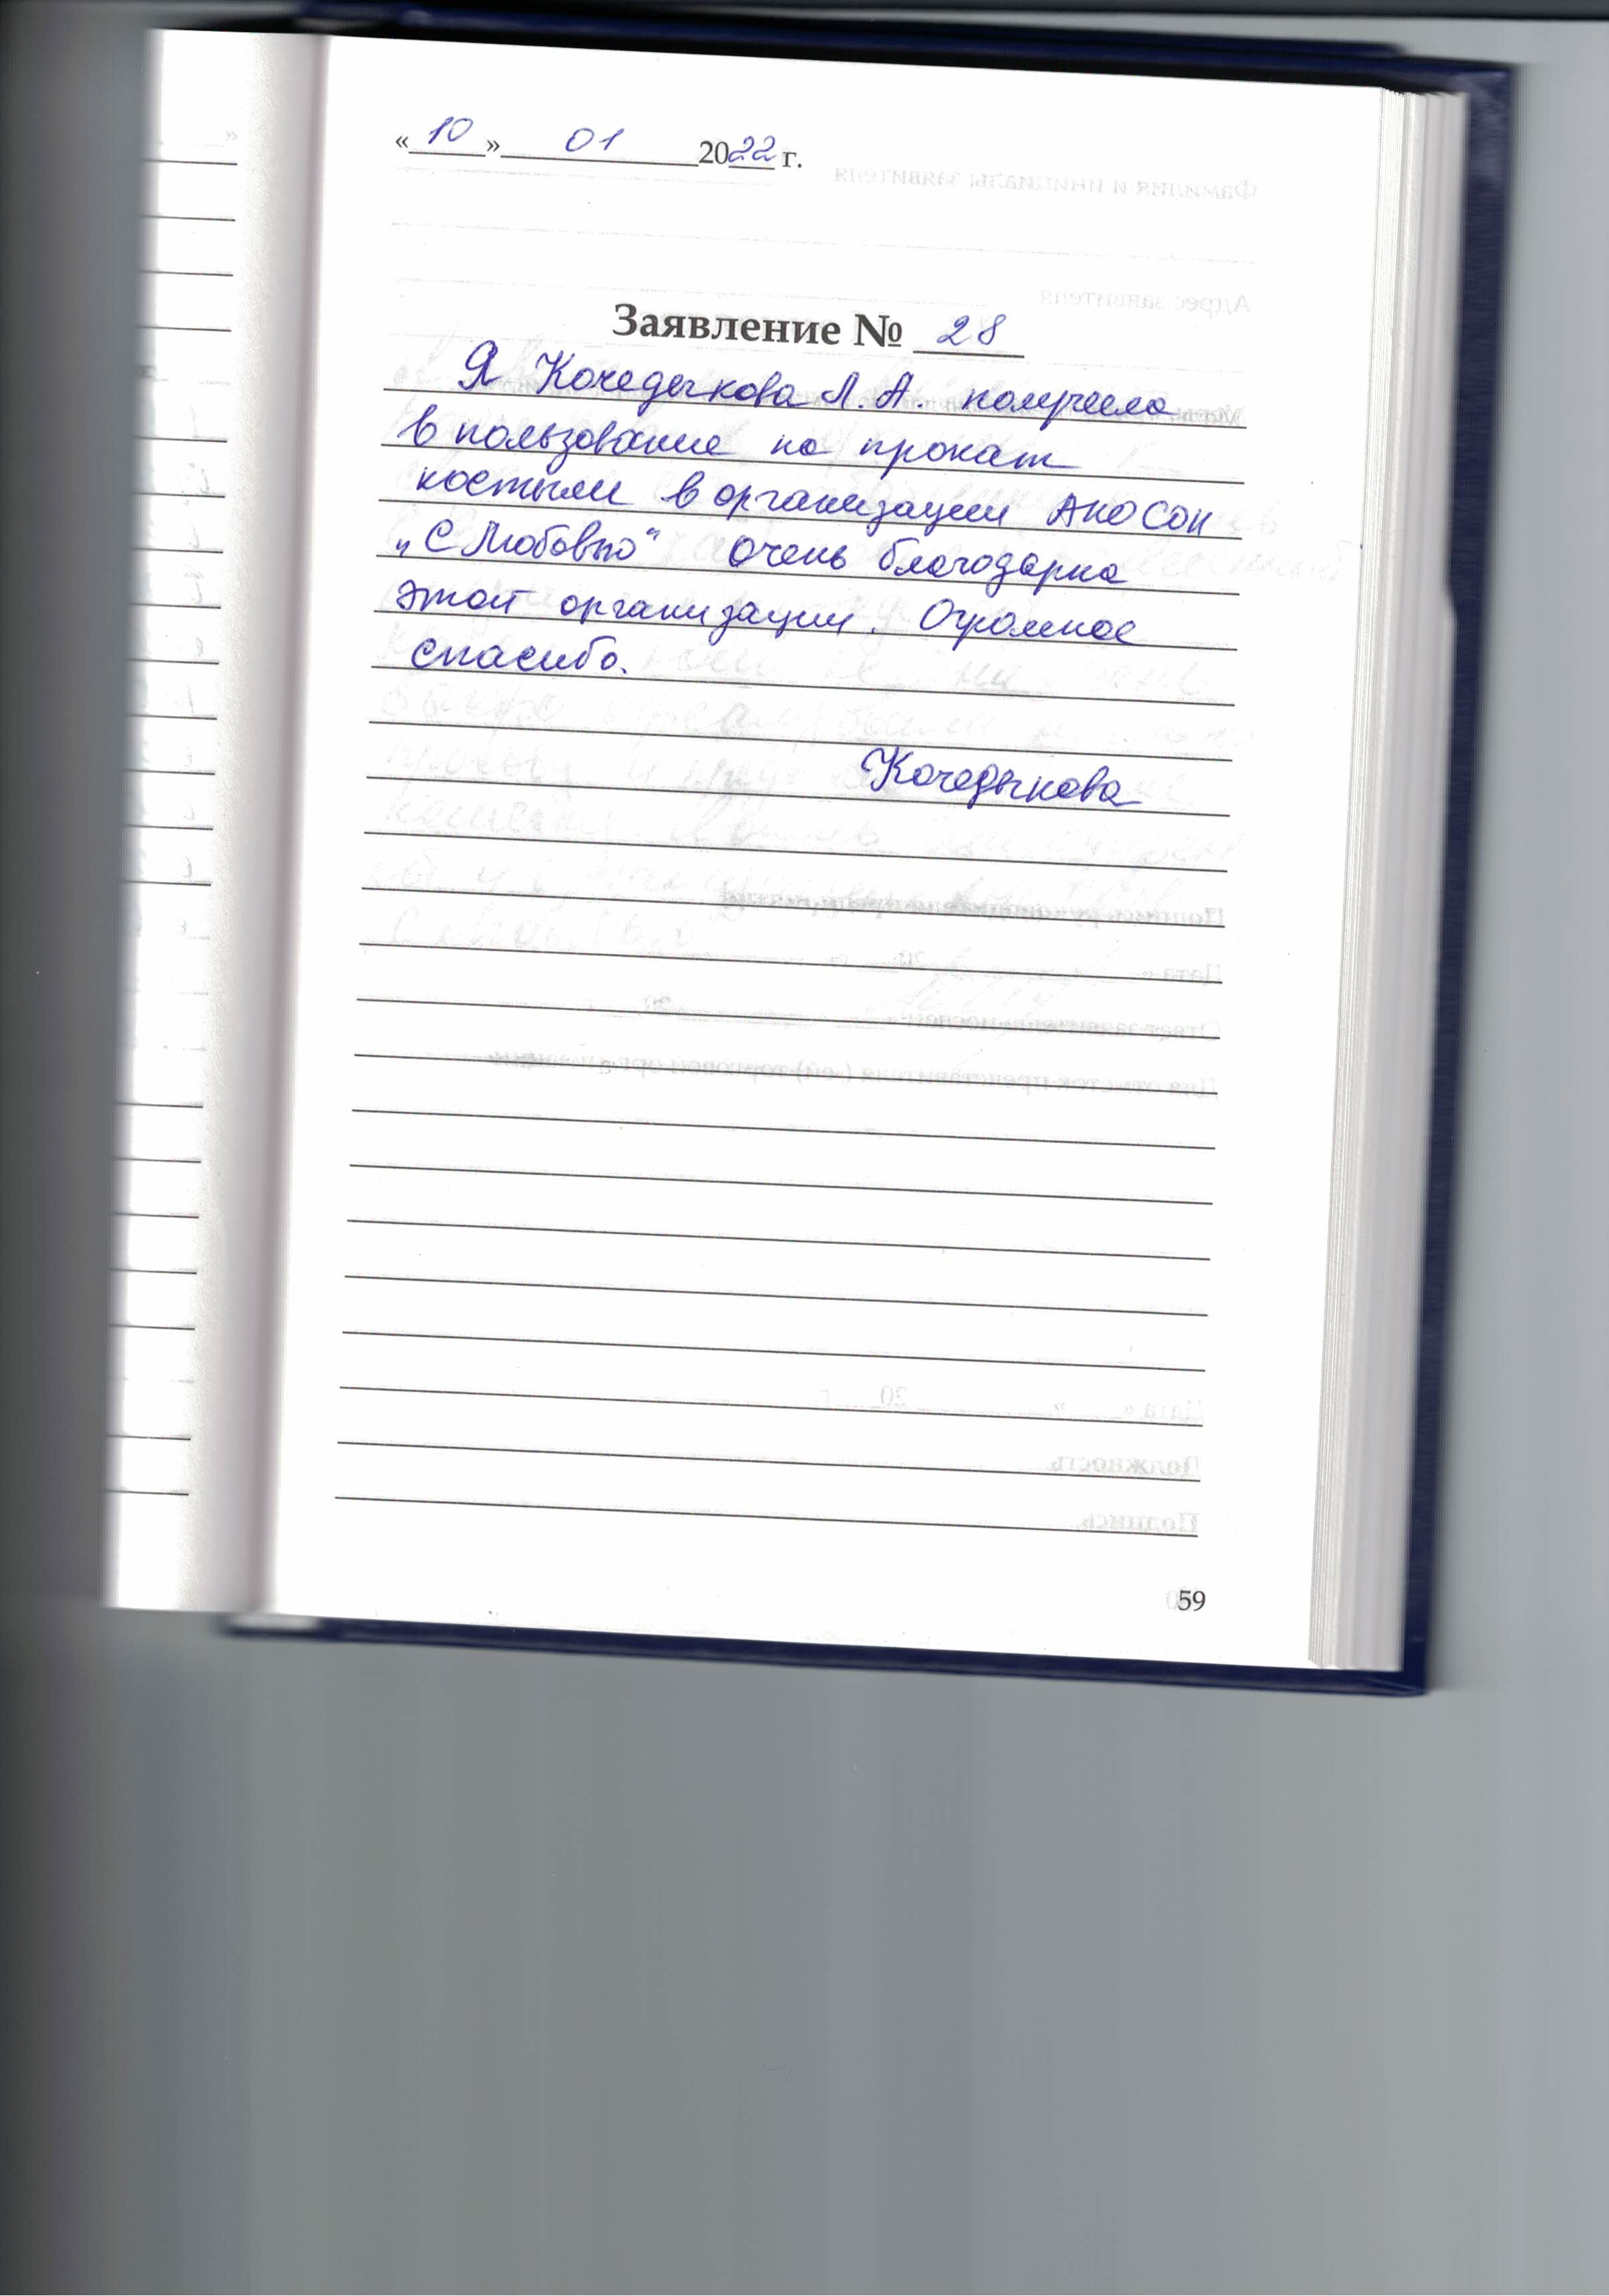 « 10 » 01 2022 г.
Заявление № 28
Я Кочедыкова Л. А. получила
в пользование на прокат
костыли в организации АНО СОН
„С Любовью“ Очень благодарна
этой организации. Огромное
спасибо.
Кочедыкова
59